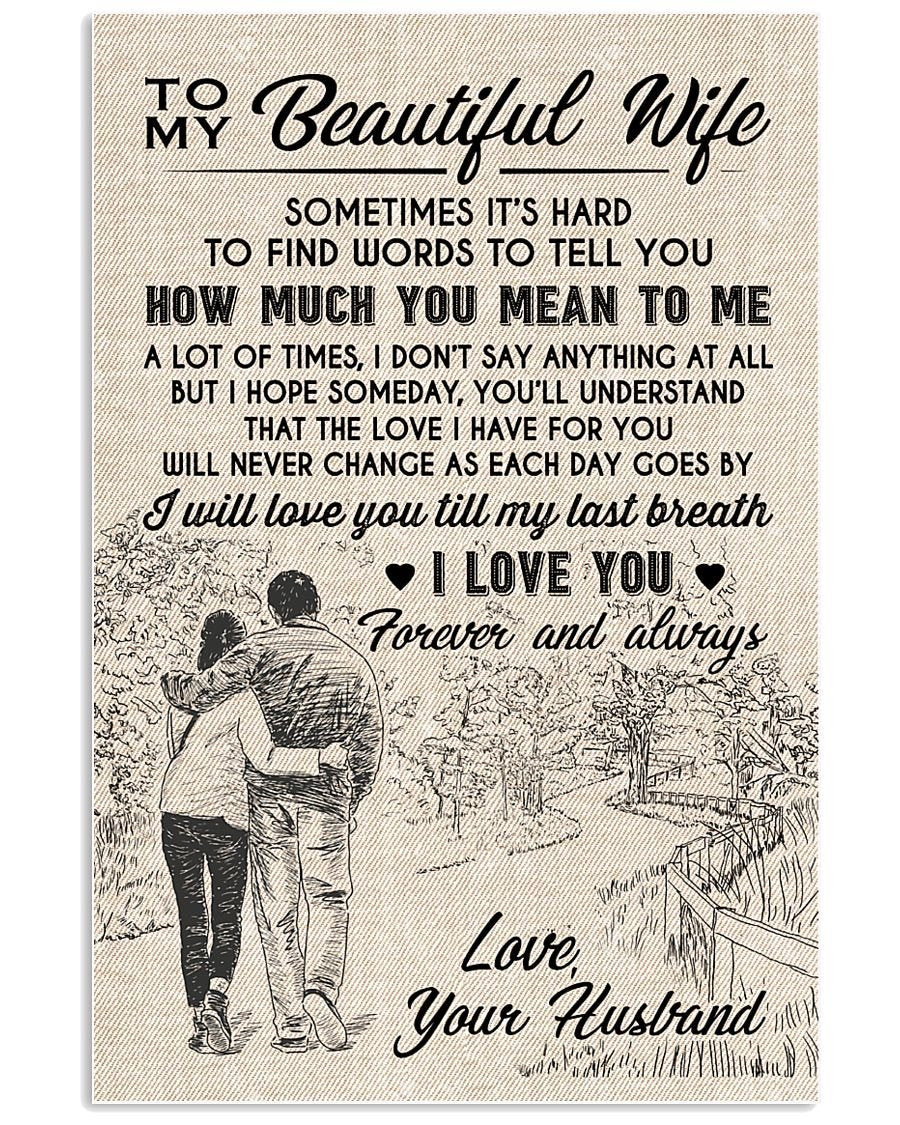 TO MY Beautiful Wife
SOMETIMES IT'S HARD
TO FIND WORDS TO TELL YOU
HOW MUCH YOU MEAN TO ME
A LOT OF TIMES, I DON'T SAY ANYTHING AT ALL
BUT I HOPE SOMEDAY, YOU'LL UNDERSTAND
THAT THE LOVE I HAVE FOR YOU
WILL NEVER CHANGE AS EACH DAY GOES BY
I will love you till my last breath
I LOVE YOU
Forever and always
Love,
Your Husband